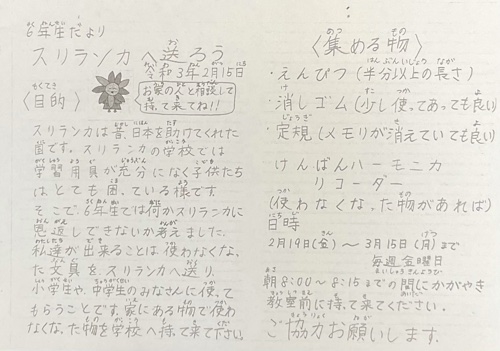 6年生だより
スリランカへ送ろう
令和3年2月15日
〈目的〉
お家の人と相談して
持って来てね!!
スリランカは昔、日本を助けてくれた
国です。スリランカの学校では
学習用具が充分になく子供たち
はとても困っている様です
そこで、6年生では何かスリランカに
恩返しできないか考えました。
私達が出来ることは使わなくなっ
た文具を、スリランカへ送り、
小学生や、中学生のみなさんに使って
もらうことです。家にある物で使わ
なくなった物を学校へ持って来て下さい。
〈集める物〉
・えんぴつ(半分以上の長さ)
・消しゴム(少し使ってあっても良い)
・定規(メモリが消えていても良い)
けんばんハーモニカ
リコーダー
(使わなくなった物があれば)
日時
2月19日(金)〜3月15日(月)まで
毎週金曜日
朝8:00〜8:15までの間にかがやき
教室前に持って来てください。
ご協力お願いします。